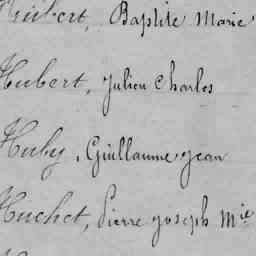 Hubert, Baptiste Marie
Hubert, Julien Charles
Huby, Guillaume Jean
Huchet, Pierre Joseph Mie